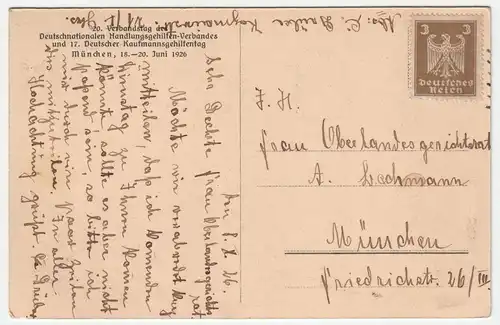 20. Verbandstag des
Deutschnationalen Handlungsgehilfen-Verbandes
und 17. Deutscher Kaufmannsgehilfentag
München, 18.—20. Juni 1926
Abs:
3 3
Deutsches
Reich
den 8. X. 26.
Sehr Geehrte
Frau Oberlandesgerichts
rat
Möchte
mitteilen, daß ich kommenden
Dienstag zu Ihnen kommen
könnte, sollte es aber nicht
passend sein, so bitte ich
mir durch ein paar Zeilen
In aller
Hochachtung grüßt
Frau Oberlandesgerichtsrat
A. Bachmann
München
Friedrichstr. 26/III